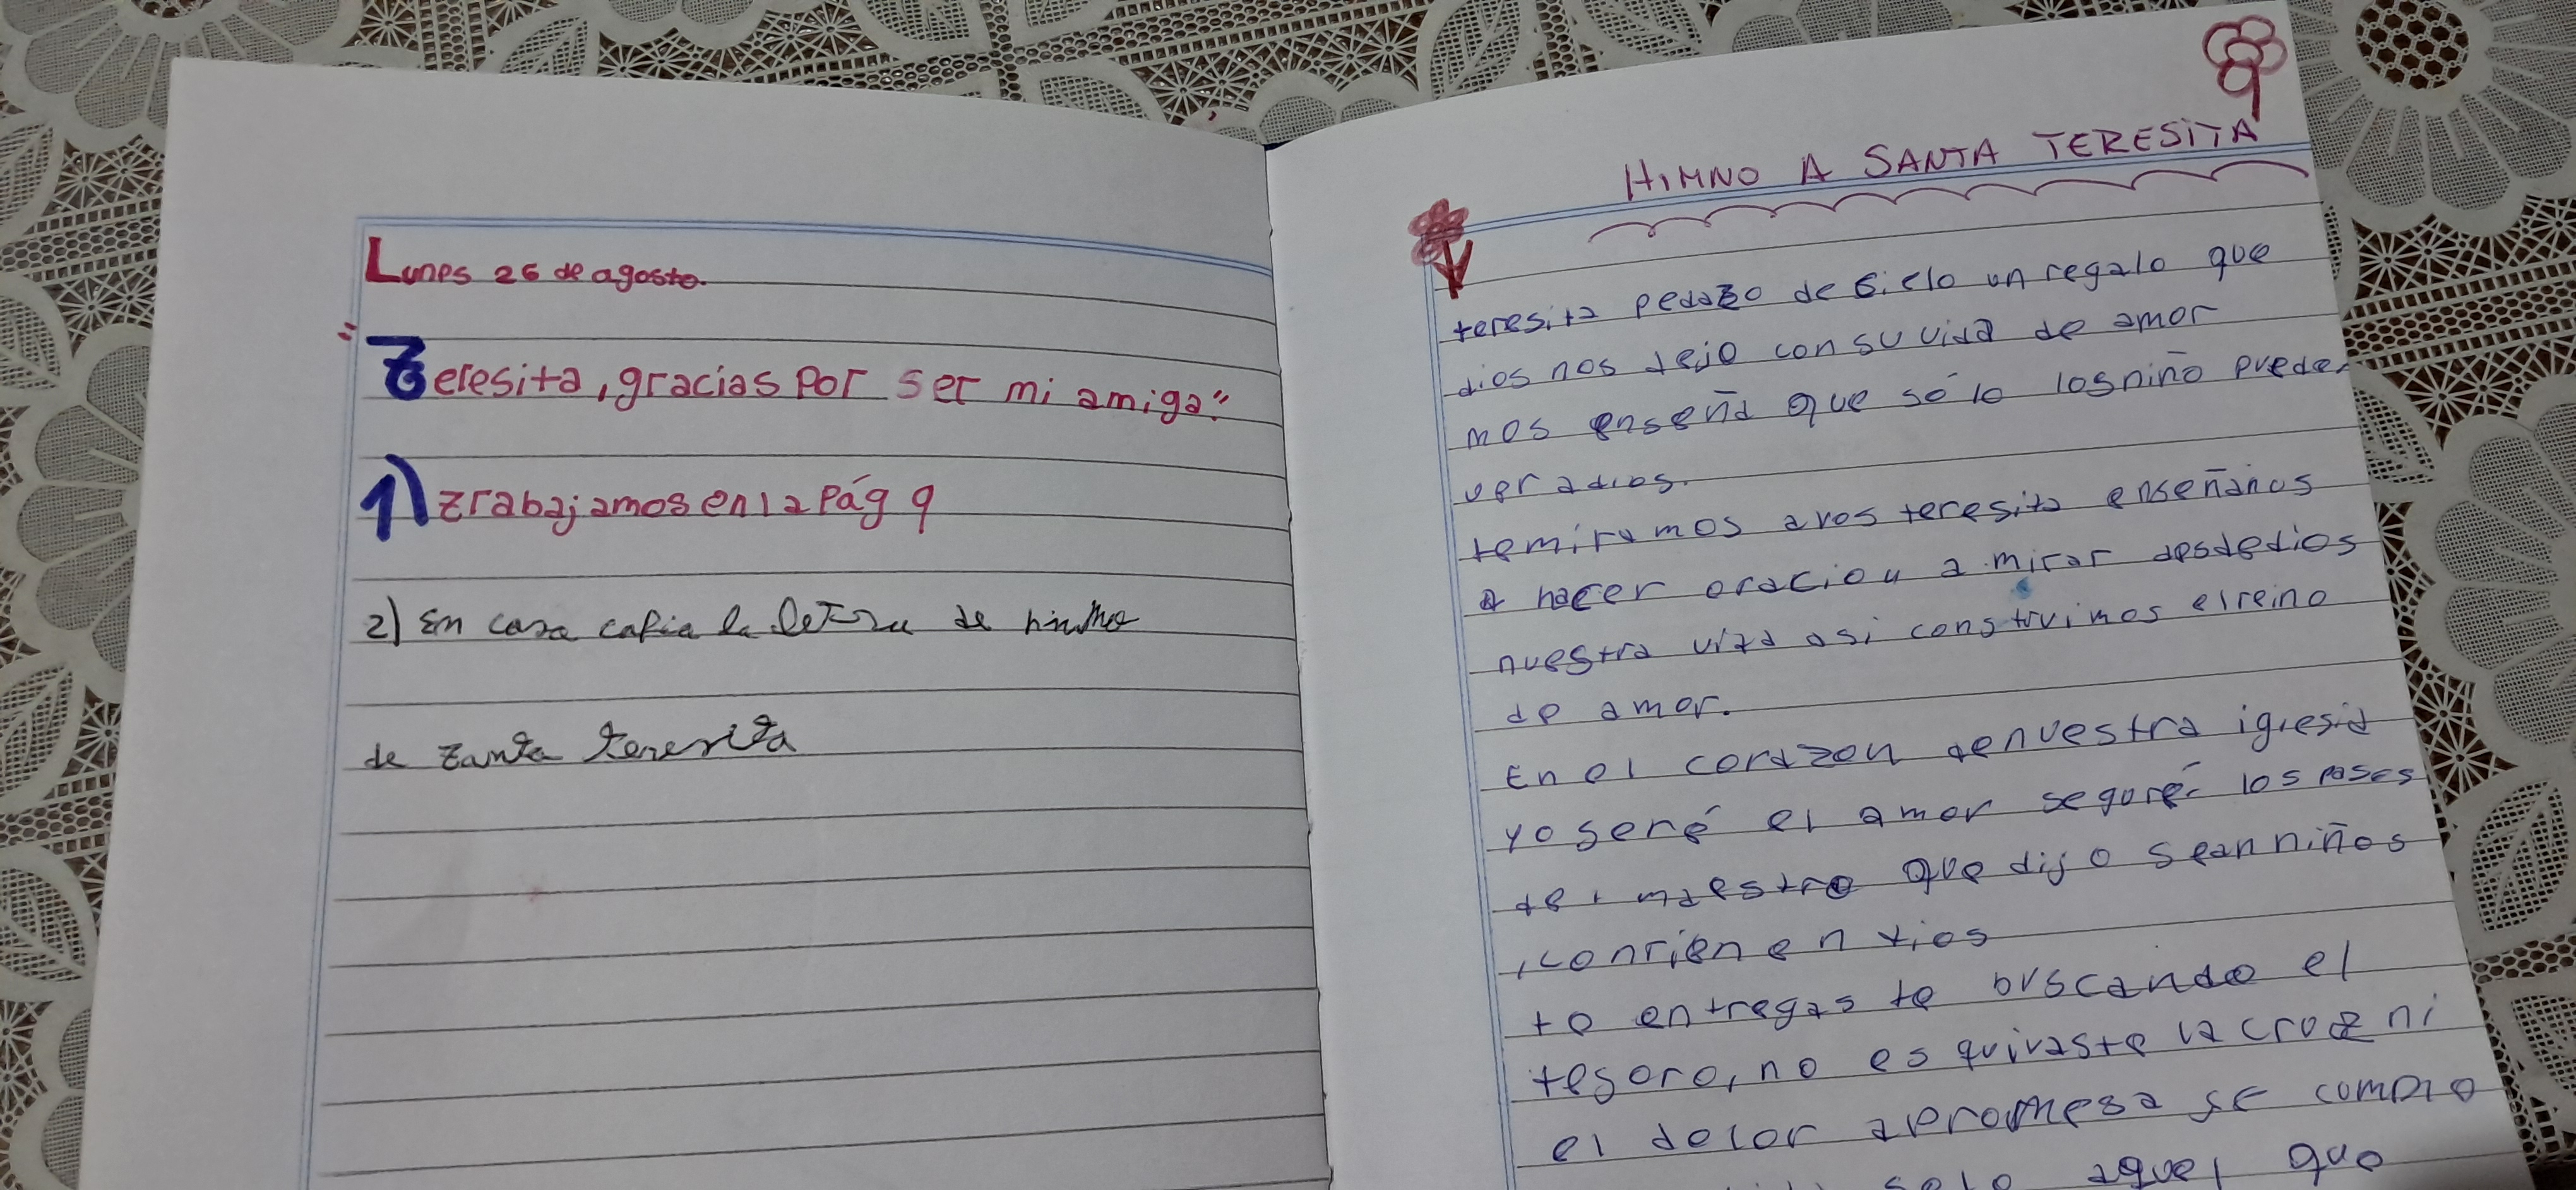 Lunes 26 de agosto.
"Teresita, gracias por ser mi amiga".
1) Trabajamos en la pág 9
2) En casa copia la letra de himno
de Santa teresita
HIMNO A SANTA TERESITA
teresita pedazo de cielo un regalo que
dios nos dejo con su vida de amor
nos enseña que sólo los niño pueden
ver a dios.
te miramos a vos teresita enseñanos
a hacer oracion a mirar desde dios
nuestra vida asi construimos el reino
de amor.
En el corazon de nuestra iglesia
yo seré el amor seguré los pasos
del maestro que dijo sean niños
confien en dios
te entregaste buscando el
tesoro, no esquivaste la cruz ni
el dolor a promesa se cumplo
solo aquel que